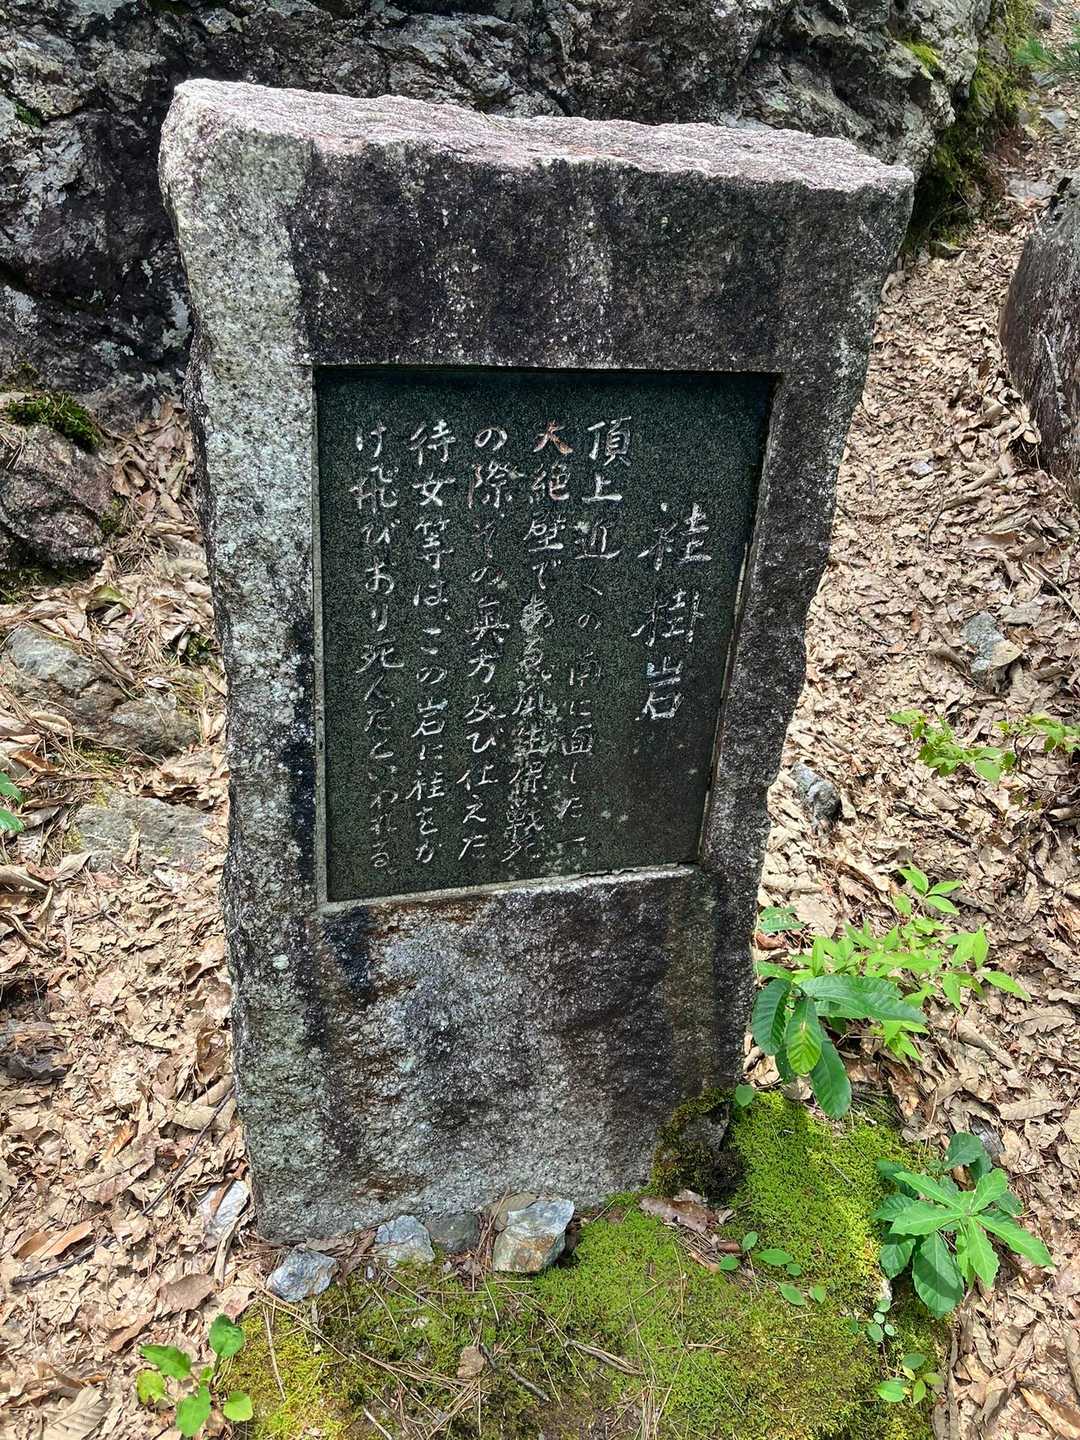 袿掛岩
頂上近くの南に面した一
大絶壁である。瓜生保戦死
の際その奥方及び仕えた
待女等は、この岩に袿をか
け飛びおり死んだといわれる